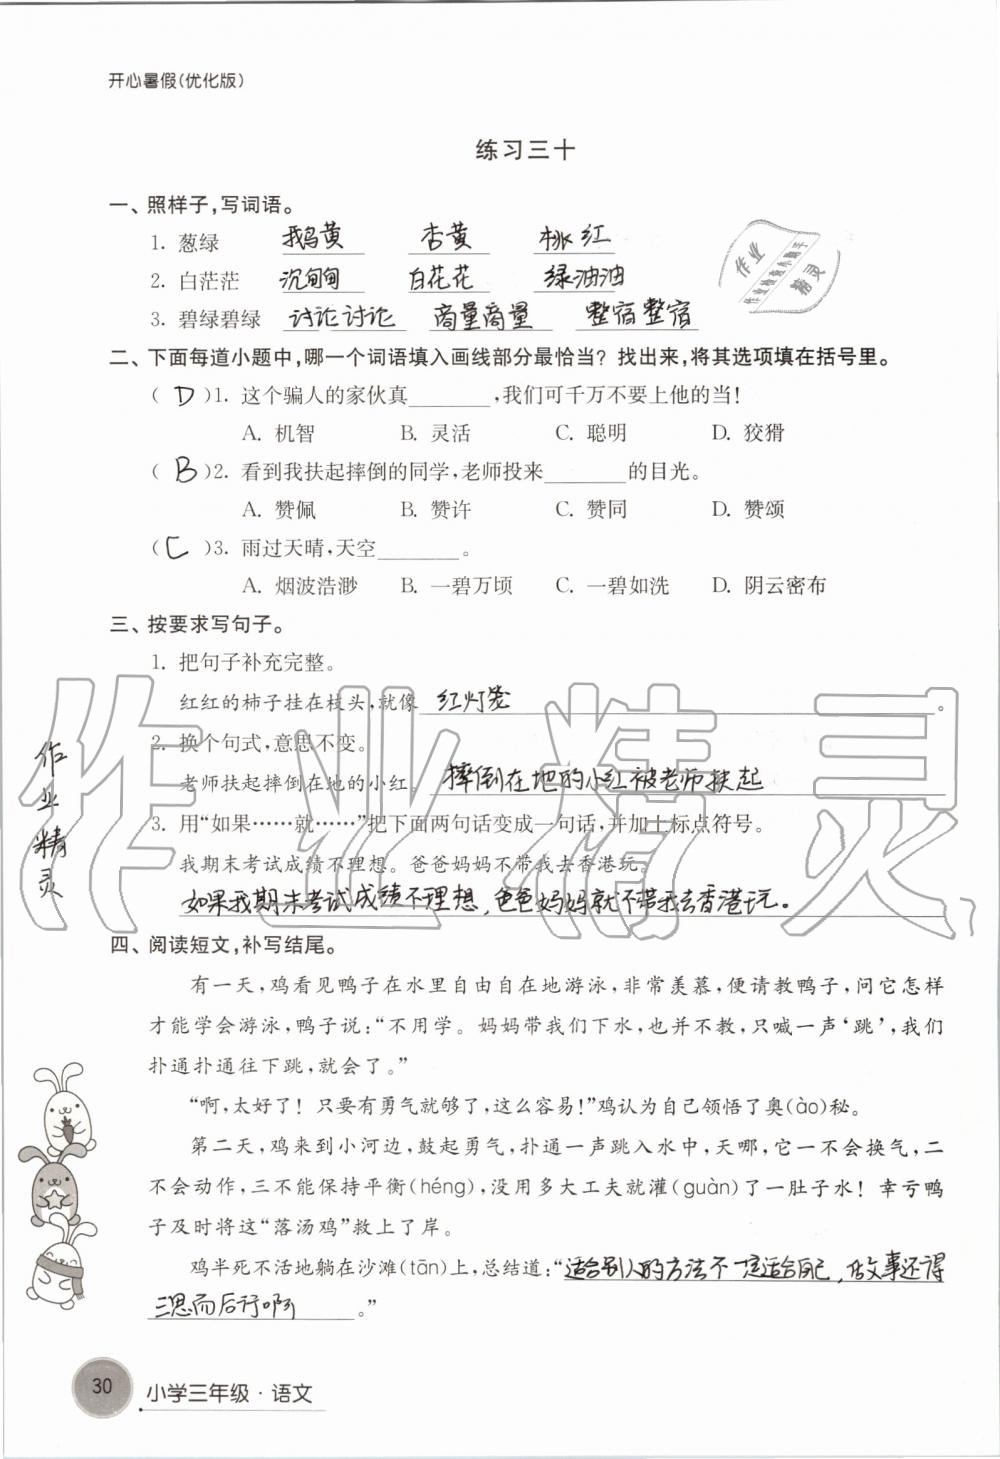 开心暑假(优化版)
练习三十
一、照样子,写词语。
1. 葱绿 鹅黄 杏黄 桃红
2. 白茫茫 沉甸甸 白花花 绿油油
3. 碧绿碧绿 讨论讨论 商量商量 整宿整宿
作业
作业检查小助手
精灵
二、下面每道小题中,哪一个词语填入画线部分最恰当?找出来,将其选项填在括号里。
( D )1. 这个骗人的家伙真________,我们可千万不要上他的当!
A. 机智 B. 灵活 C. 聪明 D. 狡猾
( B )2. 看到我扶起摔倒的同学,老师投来________的目光。
A. 赞佩 B. 赞许 C. 赞同 D. 赞颂
( C )3. 雨过天晴,天空________。
A. 烟波浩渺 B. 一碧万顷 C. 一碧如洗 D. 阴云密布
三、按要求写句子。
1. 把句子补充完整。
红红的柿子挂在枝头,就像 红灯笼 。
2. 换个句式,意思不变。
老师扶起摔倒在地的小红。 摔倒在地的小红被老师扶起
3. 用“如果……就……”把下面两句话变成一句话,并加上标点符号。
我期末考试成绩不理想。爸爸妈妈不带我去香港玩。
如果我期末考试成绩不理想,爸爸妈妈就不带我去香港玩。
作业精灵
作业精灵
四、阅读短文,补写结尾。
有一天,鸡看见鸭子在水里自由自在地游泳,非常羡慕,便请教鸭子,问它怎样
才能学会游泳,鸭子说:“不用学。妈妈带我们下水,也并不教,只喊一声‘跳’,我们
扑通扑通往下跳,就会了。”
“啊,太好了!只要有勇气就够了,这么容易!”鸡认为自己领悟了奥(ào)秘。
第二天,鸡来到小河边,鼓起勇气,扑通一声跳入水中,天哪,它一不会换气,二
不会动作,三不能保持平衡(héng),没用多大工夫就灌(guàn)了一肚子水!幸亏鸭
子及时将这“落汤鸡”救上了岸。
鸡半死不活地躺在沙滩(tān)上,总结道:“适合别人的方法不一定适合自己,做事还得
三思而后行啊 。”
30 小学三年级·语文